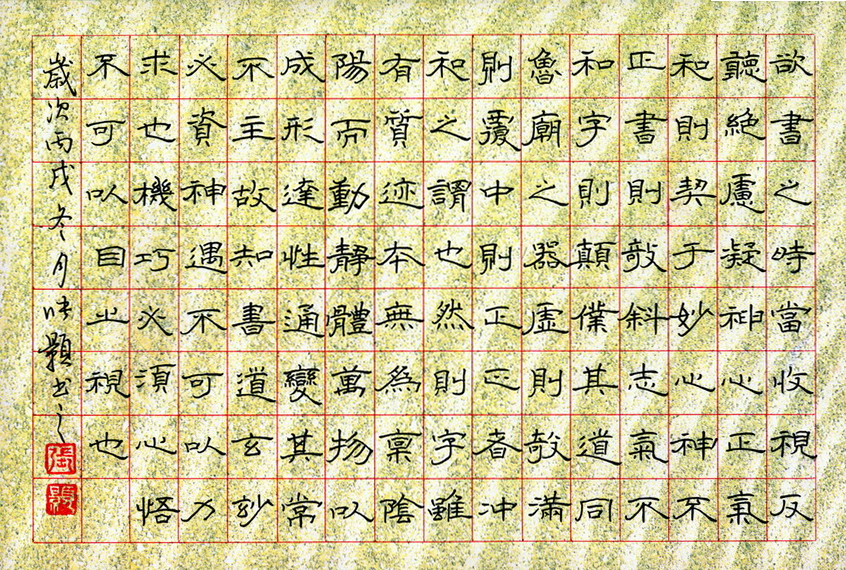 欲書之時當收視反
聽絕慮凝神心正氣
和則契于妙心神不
正書則敧斜志氣不
和字則顛僕其道同
魯廟之器虛則敧滿
則覆中則正正者冲
和之謂也然則字雖
有質迹本無為稟陰
陽而動靜體萬物以
成形達性通變其常
不主故知書道玄妙
必資神遇不可以力
求也機巧必須心悟
不可以目止視也
歲次丙戌冬月張書之
張